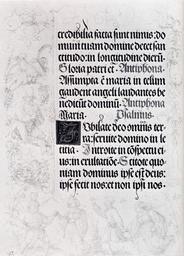 credibilia facta sunt nimis: do
mum tuam domine decet san
ctitudo: in longitudine dierū.
Gloria patri et. Antiphona.
Assumpta ē maria in celum
gaudent angeli laudantes be
nedicūt dominū. Antiphona
Maria. Psalmus.
Iubilate deo omnis ter
ra: servite domino in le
ticia. Introite in cōspectu ei
us: in exultatiōe. Scitote quo
niam dominus ipse est deus:
ipse fecit nos: et non ipsi nos.